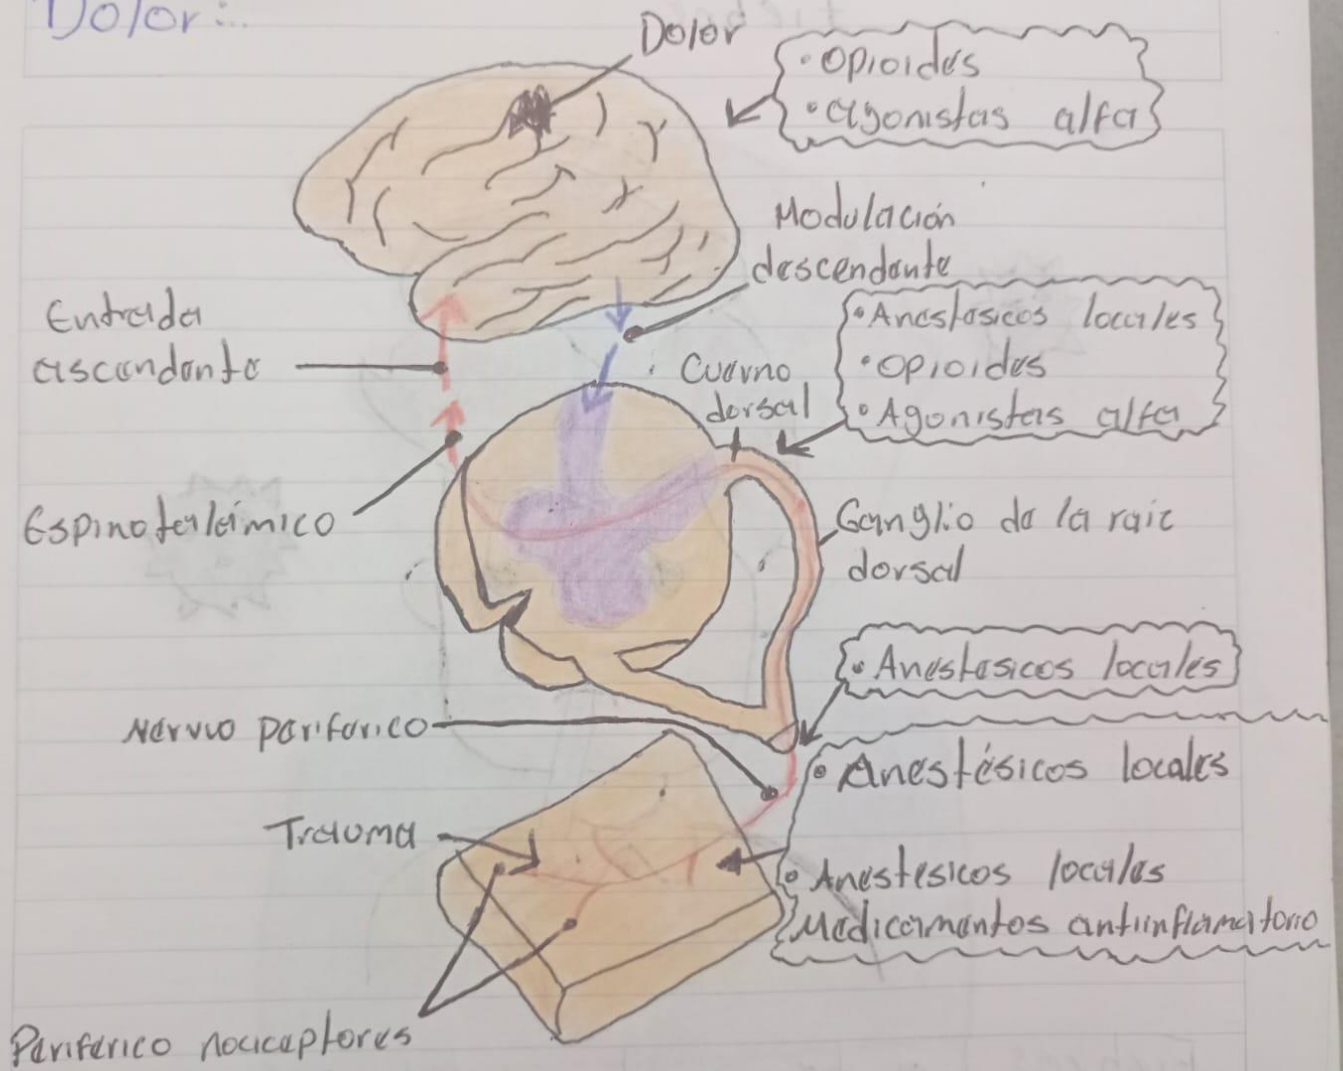 Dolor:..
Dolor
• Opioides
• agonistas alfa
Modulación
descendente
Entrada
ascendente
• Anestesicos locales
• Opioides
• Agonistas alfa
Cuerno
dorsal
Espinotalámico
Ganglio de la raiz
dorsal
• Anestesicos locales
Nervio periferico
• Anestésicos locales
Trauma
• Anestesicos locales
Medicamentos antiinflamatorio
Periferico nociceptores